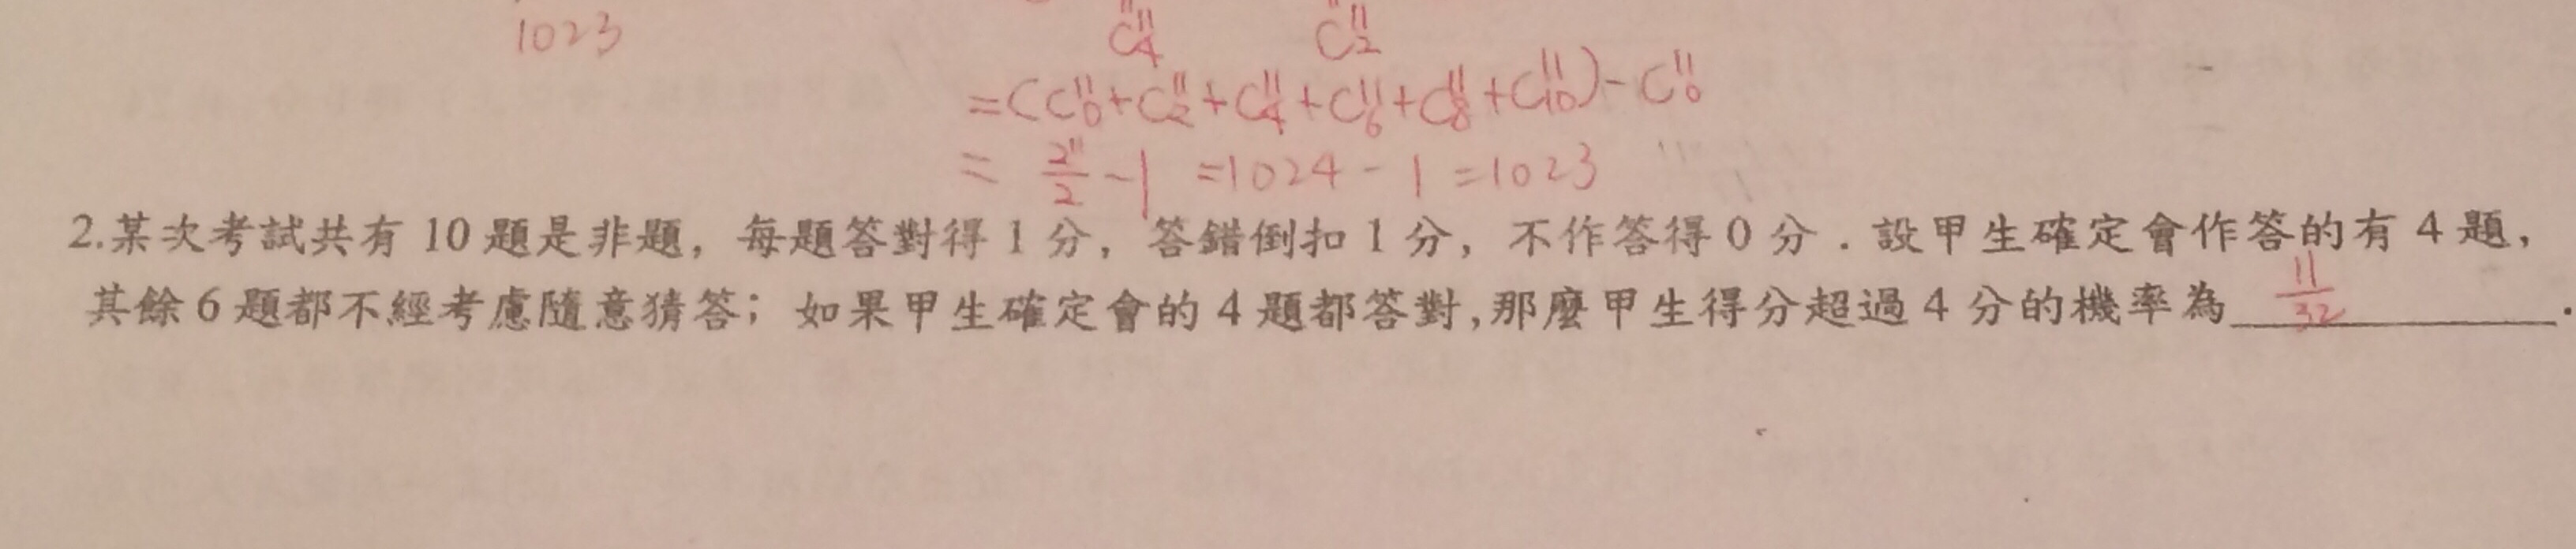 1023
C₄¹¹ C₂¹¹
=(C₀¹¹+C₂¹¹+C₄¹¹+C₆¹¹+C₈¹¹+C₁₀¹¹)-C₀¹¹
= 2¹¹/2 -1 =1024-1=1023
2.某次考試共有 10 題是非題，每題答對得 1 分，答錯倒扣 1 分，不作答得 0 分．設甲生確定會作答的有 4 題，
其餘 6 題都不經考慮隨意猜答；如果甲生確定會的 4 題都答對，那麼甲生得分超過 4 分的機率為 11/32 .